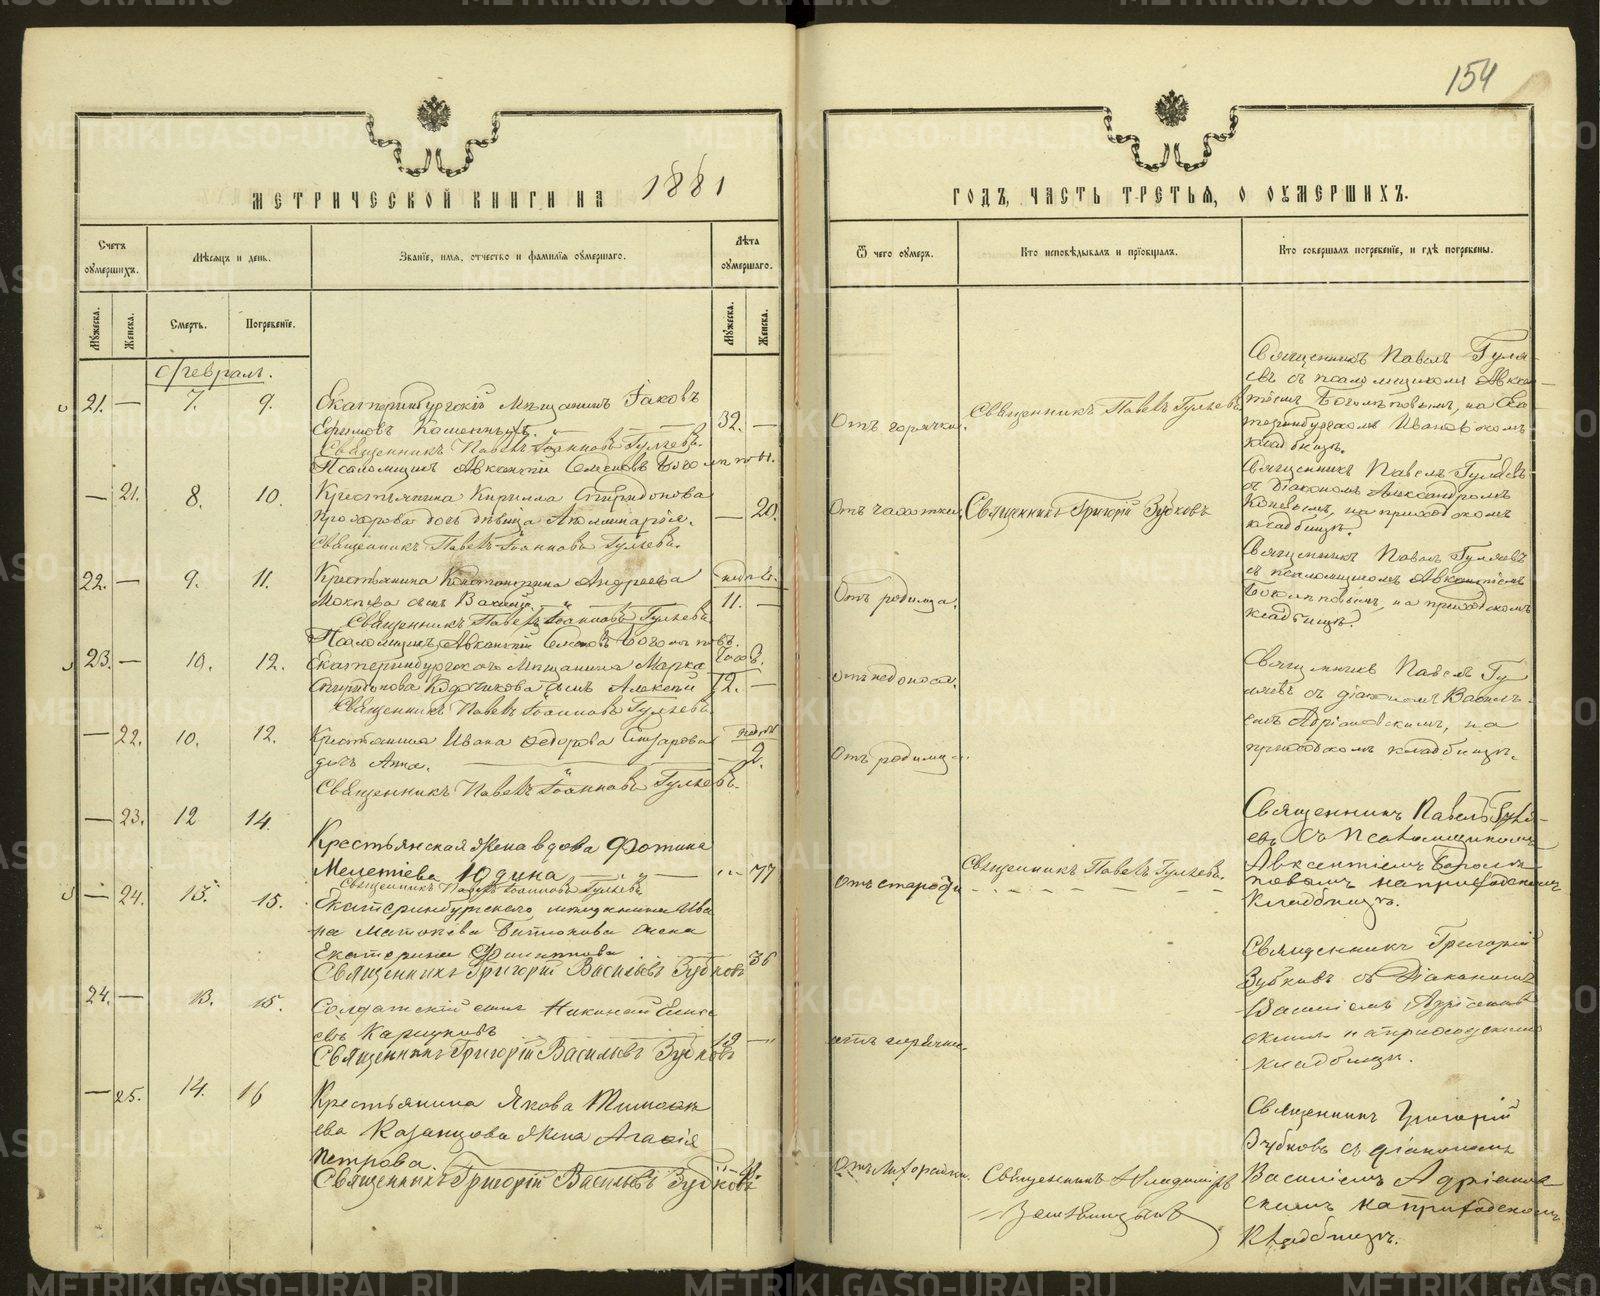 154
МЕТРИЧЕСКОЙ КНИГИ НА 1881
Счетъ оумершихъ.
Мѣсяцъ и день.
Званіе, имя, отчество и фамилія оумершаго.
Лѣта оумершаго.
Мужеска.
Женска.
Смерть.
Погребеніе.
Мужеска.
Женска.
Февраль.
21. — 7. 9. Екатеринбургскій Мѣщанинъ Іаковъ
Ефимовъ 32. —
Священникъ Павелъ Іоанновъ Гуляевъ.
Псаломщикъ Авксентій
— 21. 8. 10. Крестьянина Кирилла Спиридонова
Прохорова дочь дѣвица Аполлинарія. — 20.
Священникъ Павелъ Іоанновъ Гуляевъ.
22. — 9. 11. Крестьянина Андреева
сынъ 11. —
Священникъ Павелъ Іоанновъ Гуляевъ.
Псаломщикъ Авксентій
23. — 10. 12. Екатеринбургскаго Мѣщанина Марка
Спиридонова сынъ Алексій 12. —
Священникъ Павелъ Іоанновъ Гуляевъ.
— 22. 10. 12. Крестьянина Ивана Федорова
дочь Анна. — 2.
Священникъ Павелъ Іоанновъ Гуляевъ.
— 23. 12 14. Крестьянская жена вдова Фотина
Мелетіева Юдина — 77
Священникъ Павелъ Іоанновъ Гуляевъ
— 24. 13. 15. Екатеринбургскаго мѣщанина Ива
на жена
Екатерина Филиппова 36
Священникъ Григорій Васильевъ Зубковъ
24. — 13. 15. Солдатскій сынъ
евъ 19 —
Священникъ Григорій Васильевъ Зубковъ
— 25. 14. 16 Крестьянина Якова Тимофе
ева Казанцова жена Агафія
Петрова.
Священникъ Григорій Васильевъ Зубковъ
ГОДЪ, ЧАСТЬ ТРЕТЬЯ, О ОУМЕРШИХЪ.
Ѿ чего оумеръ.
Кто исповѣдывалъ и пріобщалъ.
Кто совершалъ погребеніе, и гдѣ погребены.
Отъ горячки.
Священникъ Павелъ Гуляевъ
Священникъ Павелъ Гуля-
евъ съ псаломщикомъ Авксен-
тіемъ Боголѣповымъ, на Ека
теринбургскомъ Ивановскомъ
кладбищѣ.
Отъ чахотки.
Священникъ Григорій Зубковъ
Священникъ Павелъ Гуляевъ
съ діакономъ Александромъ
на приходскомъ
кладбищѣ.
Отъ родимца.
Священникъ Павелъ Гуляевъ
съ псаломщикомъ Авксентіемъ
Боголѣповымъ, на приходскомъ
кладбищѣ.
Отъ недоноса.
Священникъ Павелъ Гу
ляевъ съ діакономъ Василь-
емъ Адріановскимъ, на
приходскомъ кладбищѣ.
Отъ родимца.
Отъ старости
Священникъ Павелъ Гуляевъ.
Священникъ Павелъ Гуля-
евъ съ Псаломщикомъ
Авксентіемъ Боголѣ
повымъ на приходскомъ
кладбищѣ.
Священникъ Григорій
Зубковъ съ Діакономъ
Василіемъ Адріанов
скимъ на приходскомъ
кладбищѣ.
отъ горячки.
Отъ лихорадки.
Священникъ Владиміръ
Священникъ Григорій
Зубковъ съ діакономъ
Василіемъ Адріанов
скимъ на приходскомъ
кладбищѣ.
METRIKI.GASO-URAL.RU